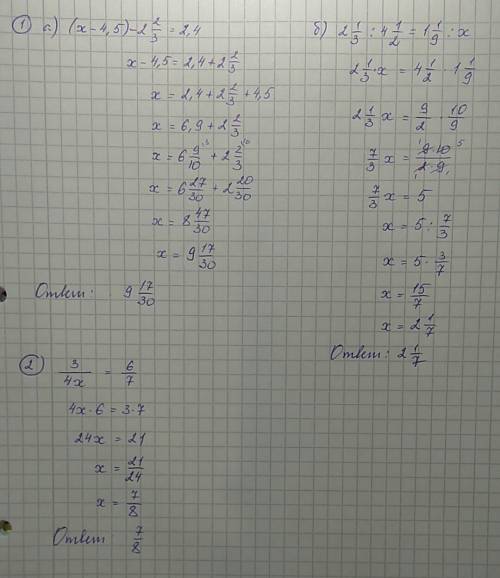 ① а) (x-4,5)-2 2/3 = 2,4
x-4,5 = 2,4+2 2/3
x = 2,4+2 2/3+4,5
x = 6,9+2 2/3
x = 6 9/10 ·3 + 2 2/3 ·10
x = 6 27/30 + 2 20/30
x = 8 47/30
x = 9 17/30
Ответ: 9 17/30
б) 2 1/3 : 4 1/2 = 1 1/9 : x
2 1/3 · x = 4 1/2 · 1 1/9
2 1/3 x = 9/2 · 10/9
7/3 x = 9·10/2·9
7/3 x = 5
x = 5 : 7/3
x = 5 · 3/7
x = 15/7
x = 2 1/7
Ответ: 2 1/7
② 3/4x = 6/7
4x·6 = 3·7
24x = 21
x = 21/24
x = 7/8
Ответ 7/8